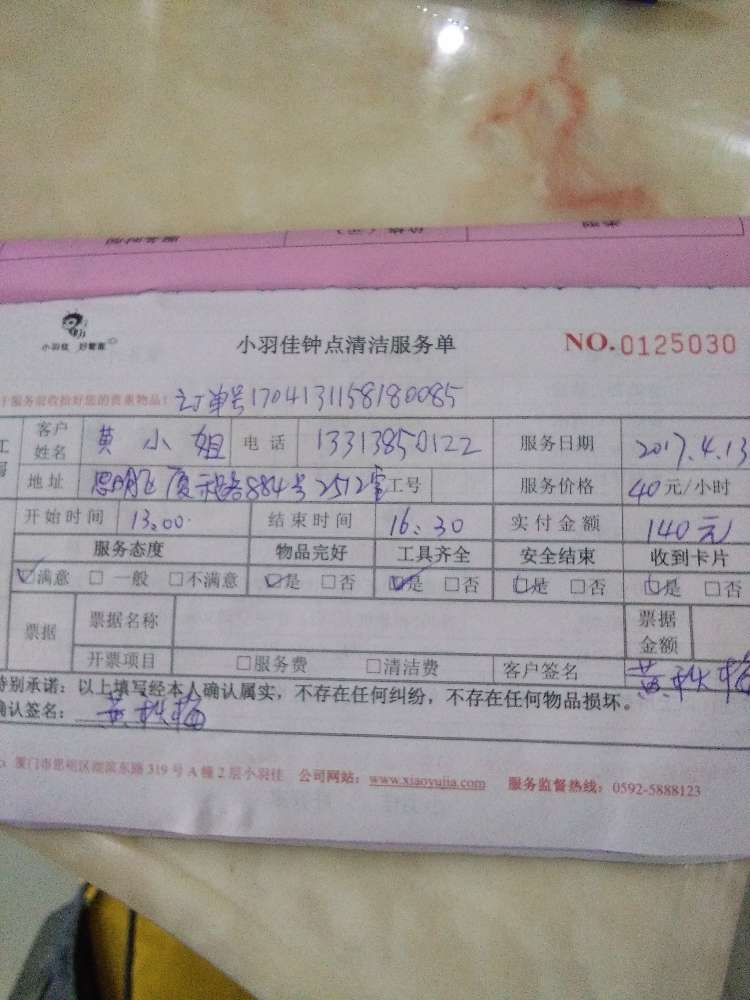 小羽佳 好管家
小羽佳钟点清洁服务单
NO.0125030
服务前收拾好您的贵重物品！ 订单号1704131158180085
客户姓名 黄小姐 电话 13313850122 服务日期 2017.4.13
地址 思明区厦禾路884号2512室 工号 服务价格 40元/小时
开始时间 13:00 结束时间 16:30 实付金额 140元
服务态度 物品完好 工具齐全 安全结束 收到卡片
☑满意 □一般 □不满意 ☑是 □否 ☑是 □否 ☑是 □否 ☑是 □否
票据 票据名称 票据金额
开票项目 □服务费 □清洁费 客户签名 黄秋梅
特别承诺：以上填写经本人确认属实，不存在任何纠纷，不存在任何物品损坏。
确认签名： 黄秋梅
厦门市思明区湖滨东路319号A幢2层小羽佳 公司网站：www.xiaoyujia.com 服务监督热线：0592-5888123